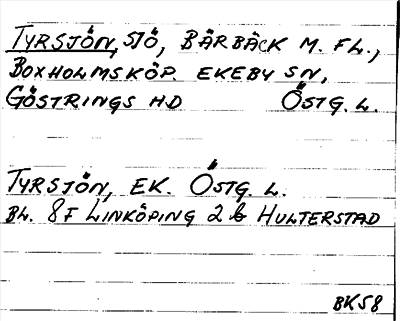 TYRSJÖN, SJÖ, BÄRBÄCK M. FL.,
BOXHOLMSKÖP. EKEBY SN,
GÖSTRINGS HD ÖSTG. L.
TYRSJÖN, EK. ÖSTG. L.
BL. 8F LINKÖPING 2 b HULTERSTAD
BK58